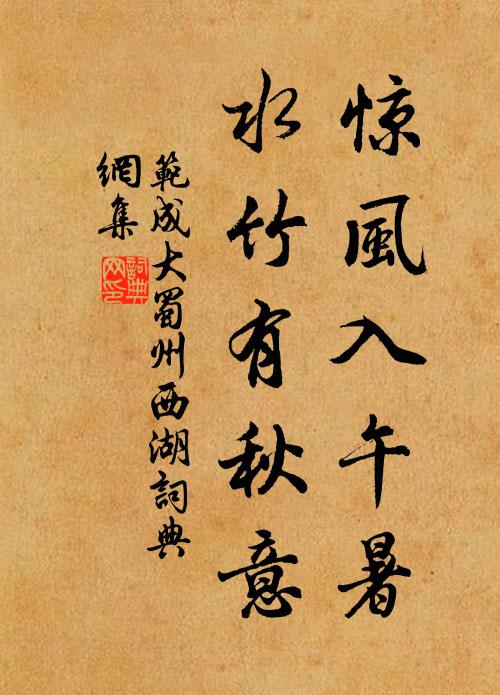 惊風入午暑
水竹有秋意
範成大蜀州西湖詞典
網集
詞典
网印